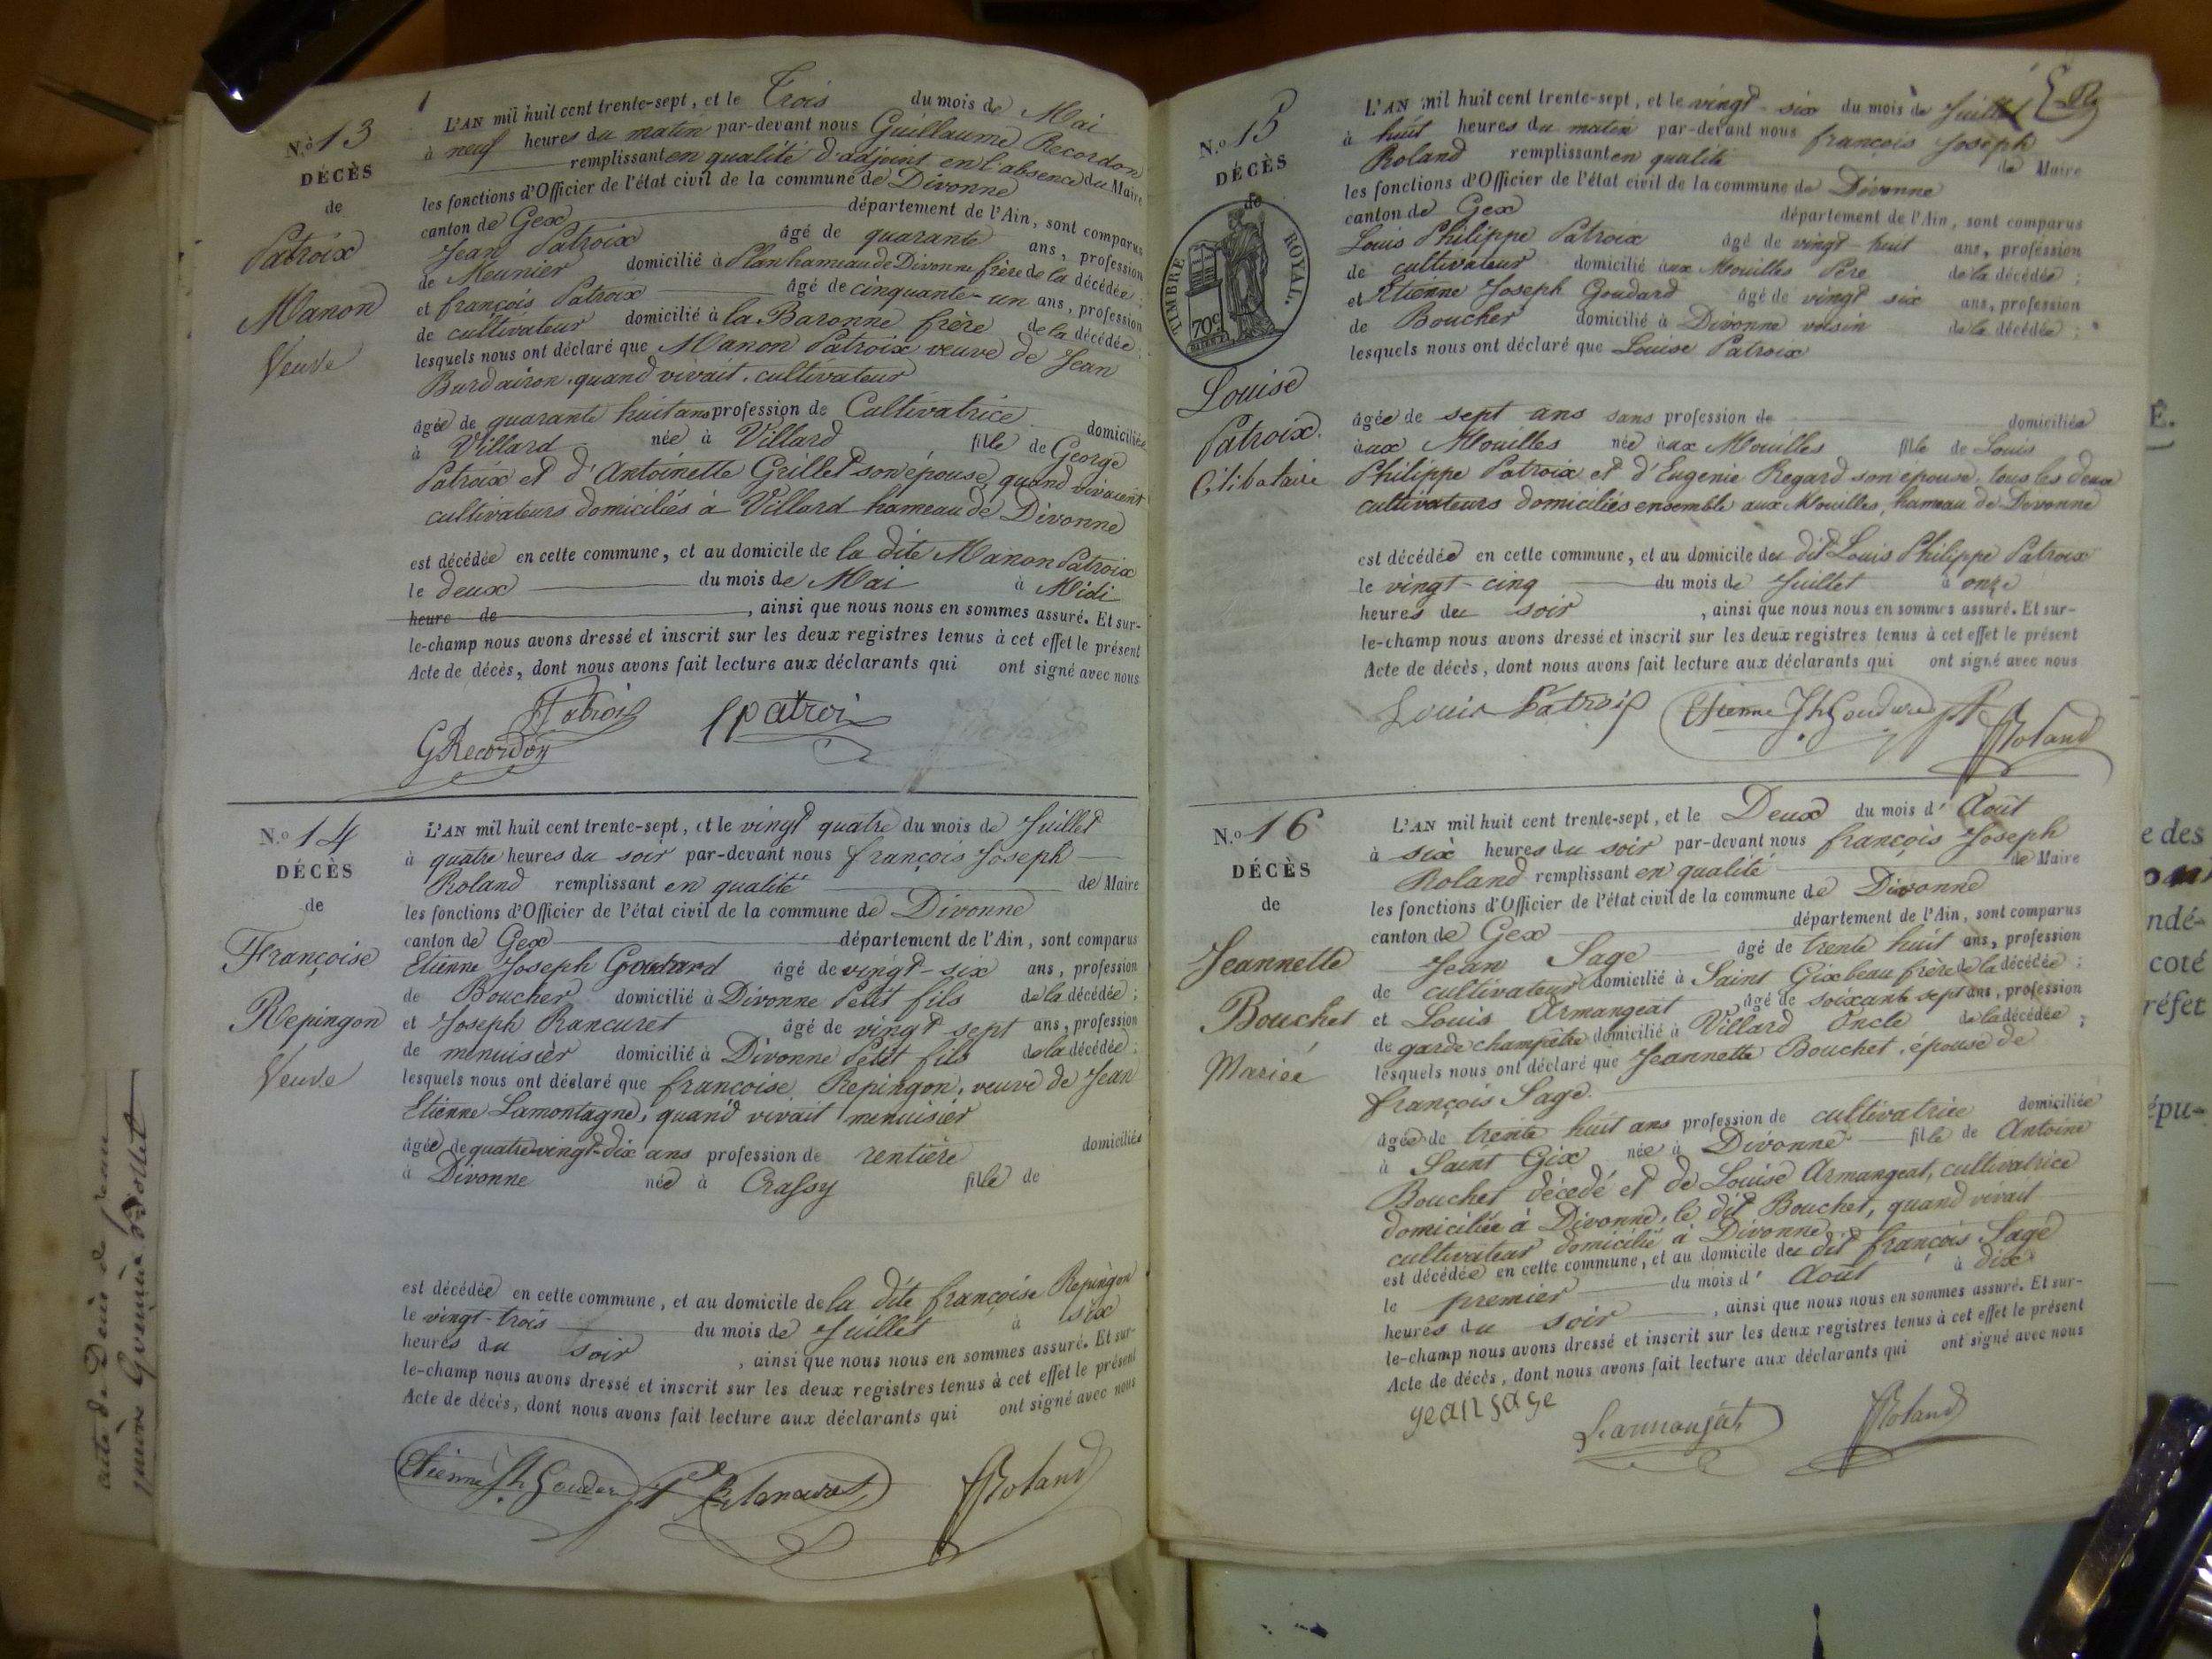 N.º 13
DÉCÈS
de
Patroix
Manon
Veuve
L'AN mil huit cent trente-sept, et le Trois du mois de Mai
à neuf heures du matin par-devant nous Guillaume Recordon
remplissant en qualité d'adjoint en l'absence du Maire
les fonctions d'Officier de l'état civil de la commune de Divonne
canton de Gex département de l'Ain, sont comparus
Jean Patroix âgé de quarante ans, profession
de Meunier domicilié à Plan hameau de Divonne frère de la décédée;
et françois Patroix âgé de cinquante-un ans, profession
de cultivateur domicilié à la Baronne frère de la décédée;
lesquels nous ont déclaré que Manon Patroix veuve de Jean
Burdairon, quand vivait, cultivateur
âgée de quarante huit ans profession de Cultivatrice domiciliée
à Villard née à Villard fille de George
Patroix et d'Antoinette Grillet son épouse, quand vivaient
cultivateurs domiciliés à Villard hameau de Divonne
est décédée en cette commune, et au domicile de la dite Manon Patroix
le deux du mois de Mai à Midi
heure de , ainsi que nous nous en sommes assuré. Et sur-
le-champ nous avons dressé et inscrit sur les deux registres tenus à cet effet le présent
Acte de décès, dont nous avons fait lecture aux déclarants qui ont signé avec nous
GRecordon
patroi
N.º 14
DÉCÈS
de
Françoise
Repingon
Veuve
L'AN mil huit cent trente-sept, et le vingt quatre du mois de Juillet
à quatre heures du soir par-devant nous françois Joseph
Roland remplissant en qualité de Maire
les fonctions d'Officier de l'état civil de la commune de Divonne
canton de Gex département de l'Ain, sont comparus
Etienne Joseph Goudard âgé de vingt-six ans, profession
de Boucher domicilié à Divonne Petit fils de la décédée;
et Joseph Rancuret âgé de vingt sept ans, profession
de menuisier domicilié à Divonne Petit fils de la décédée;
lesquels nous ont déclaré que françoise Repingon, veuve de Jean
Etienne Lamontagne, quand vivait menuisier
âgée de quatre-vingt-dix ans profession de rentière domiciliée
à Divonne née à Crassy fille de
est décédée en cette commune, et au domicile de la dite françoise Repingon
le vingt-trois du mois de Juillet à six
heures du soir , ainsi que nous nous en sommes assuré. Et sur-
le-champ nous avons dressé et inscrit sur les deux registres tenus à cet effet le présent
Acte de décès, dont nous avons fait lecture aux déclarants qui ont signé avec nous
Etienne Jh Goudard
Roland
N.º 15
DÉCÈS
de
TIMBRE ROYAL.
70c
Louise
Patroix.
Célibataire
L'AN mil huit cent trente-sept, et le vingt-six du mois de Juillet
à huit heures du matin par-devant nous françois Joseph
Roland remplissant en qualité de Maire
les fonctions d'Officier de l'état civil de la commune de Divonne
canton de Gex département de l'Ain, sont comparus
Louis Philippe Patroix âgé de vingt-huit ans, profession
de cultivateur domicilié aux Mouilles Père de la décédée;
et Etienne Joseph Goudard âgé de vingt six ans, profession
de Boucher domicilié à Divonne voisin de la décédée;
lesquels nous ont déclaré que Louise Patroix
âgée de sept ans sans profession de domiciliée
aux Mouilles née aux Mouilles fille de Louis
Philippe Patroix et d'Eugenie Regard son epouse, tous les deux
cultivateurs domiciliés ensemble aux Mouilles, hameau de Divonne
est décédée en cette commune, et au domicile du dit Louis Philippe Patroix
le vingt-cinq du mois de Juillet à onze
heures du soir , ainsi que nous nous en sommes assuré. Et sur-
le-champ nous avons dressé et inscrit sur les deux registres tenus à cet effet le présent
Acte de décès, dont nous avons fait lecture aux déclarants qui ont signé avec nous
Louis Patroix Etienne Jh Goudard
Roland
N.º 16
DÉCÈS
de
Jeannette
Bouchet
Mariée
L'AN mil huit cent trente-sept, et le Deux du mois d'Août
à six heures du soir par-devant nous françois Joseph
Roland remplissant en qualité de Maire
les fonctions d'Officier de l'état civil de la commune de Divonne
canton de Gex département de l'Ain, sont comparus
Jean Sage âgé de trente huit ans, profession
de cultivateur domicilié à Saint Gix beau frère de la décédée;
et Louis Armangeat âgé de soixante sept ans, profession
de garde champêtre domicilié à Villard Oncle de la décédée;
lesquels nous ont déclaré que Jeannette Bouchet, épouse de
françois Sage.
âgée de trente huit ans profession de cultivatrice domiciliée
à Saint Gix née à Divonne fille de Antoine
Bouchet décedé et de Louise Armangeat, cultivatrice
domiciliée à Divonne, le dit Bouchet, quand vivait
cultivateur domicilié à Divonne.
est décédée en cette commune, et au domicile du dit françois Sage
le premier du mois d'Août à dix
heures du soir , ainsi que nous nous en sommes assuré. Et sur-
le-champ nous avons dressé et inscrit sur les deux registres tenus à cet effet le présent
Acte de décès, dont nous avons fait lecture aux déclarants qui ont signé avec nous
jean sage
L. armanjat
Roland
É.
e des
ndé-
coté
réfet
épu-